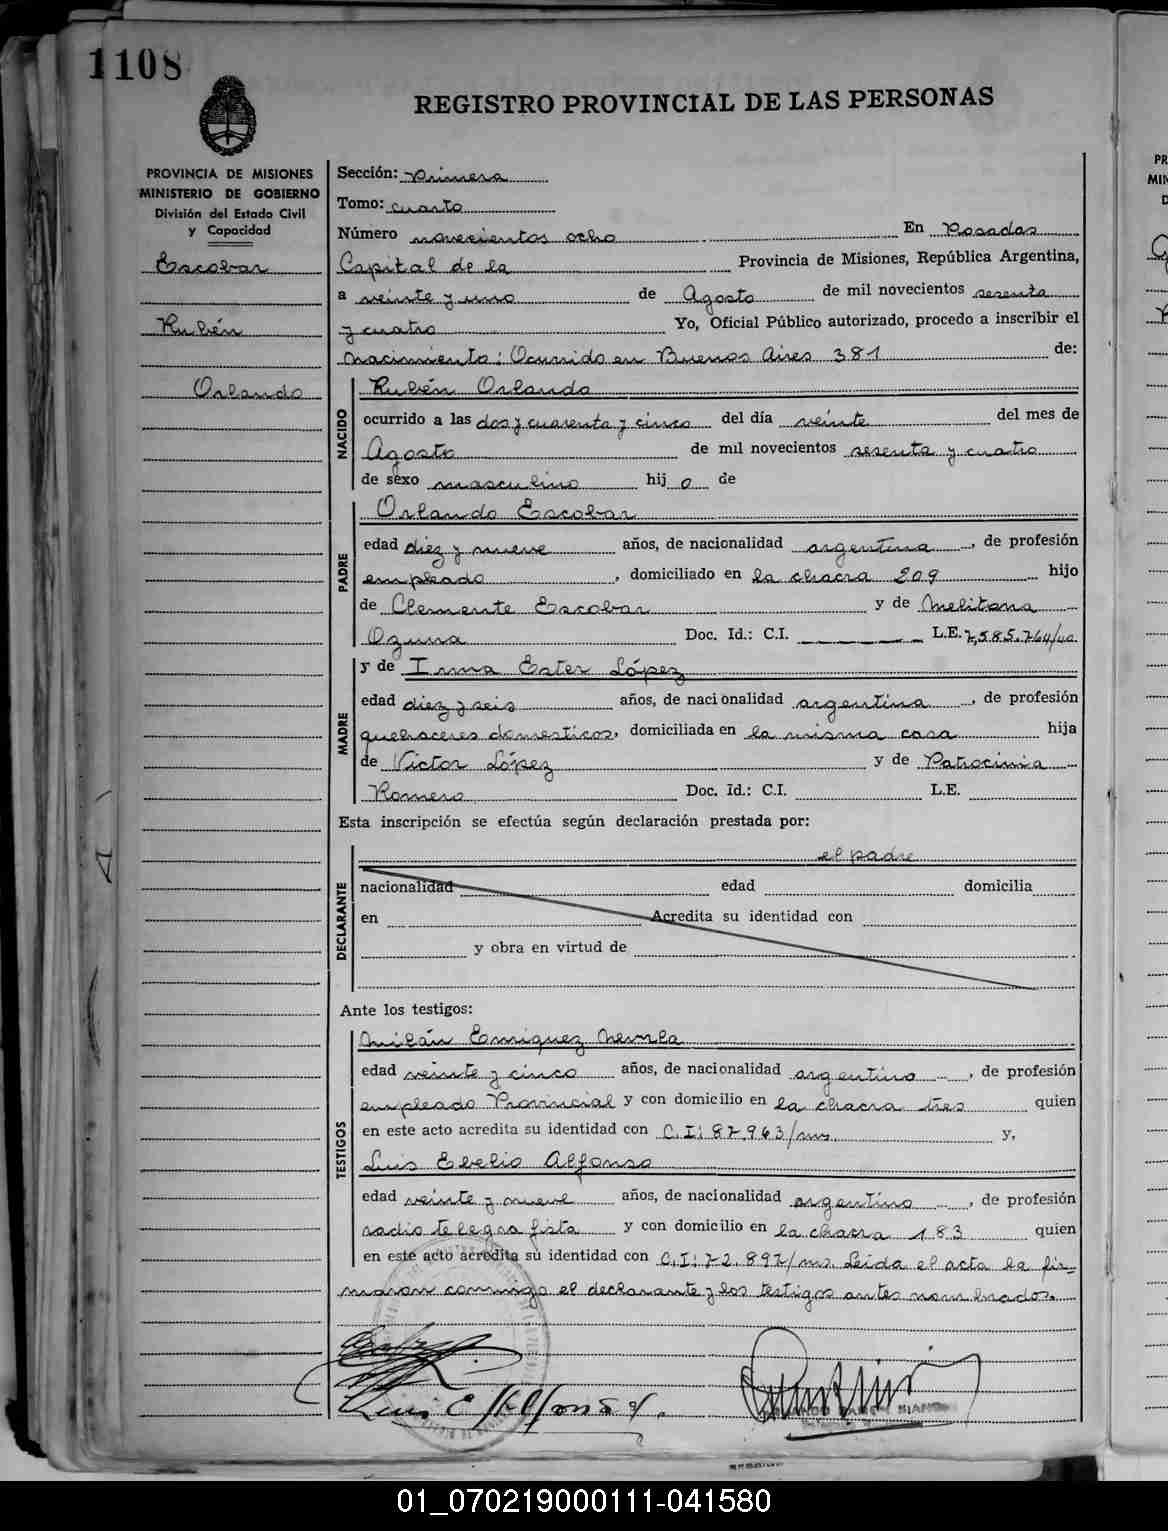 1108
REGISTRO PROVINCIAL DE LAS PERSONAS
PROVINCIA DE MISIONES
MINISTERIO DE GOBIERNO
División del Estado Civil
y Capacidad
Escobar
Rubén
Orlando
Sección: Primera
Tomo: cuarto
Número novecientos ocho En Posadas
Capital de la Provincia de Misiones, República Argentina,
a veinte y uno de Agosto de mil novecientos sesenta
y cuatro Yo, Oficial Público autorizado, procedo a inscribir el
nacimiento: Ocurrido en Buenos Aires 381 de:
NACIDO
Rubén Orlando
ocurrido a las dos y cuarenta y cinco del día veinte del mes de
Agosto de mil novecientos sesenta y cuatro
de sexo masculino hij o de
PADRE
Orlando Escobar
edad diez y nueve años, de nacionalidad argentina, de profesión
empleado, domiciliado en la chacra 209 hijo
de Clemente Escobar y de Melitona
Ozuna Doc. Id.: C.I. L.E. 7,585.764/
MADRE
y de Irma Ester López
edad diez y seis años, de nacionalidad argentina, de profesión
quehaceres domesticos, domiciliada en la misma casa hija
de Victor López y de Patrocinia
Romero Doc. Id.: C.I. L.E.
Esta inscripción se efectúa según declaración prestada por:
DECLARANTE
el padre
nacionalidad edad domicilia
en Acredita su identidad con
y obra en virtud de
Ante los testigos:
TESTIGOS
Milán Enriquez
edad veinte y cinco años, de nacionalidad argentino, de profesión
empleado Provincial y con domicilio en la chacra tres quien
en este acto acredita su identidad con C.I: 87.963/ms. y,
Luis Evelio Alfonso
edad veinte y nueve años, de nacionalidad argentino, de profesión
radio telegrafista y con domicilio en la chacra 183 quien
en este acto acredita su identidad con C.I: 72.892/ms. Leída el acta la fir-
maron conmigo el declarante y los testigos antes nombrados.
01_070219000111-041580